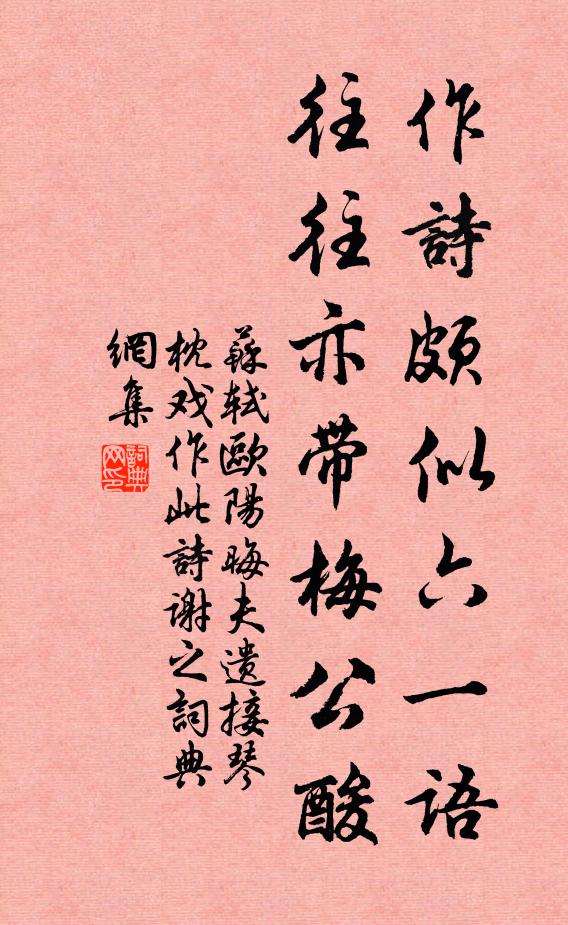 作詩頗似六一語
往往亦带梅公酸
蘇軾歐陽晦夫遺接琴
枕戏作此詩谢之詞典
網集
詞典
网印